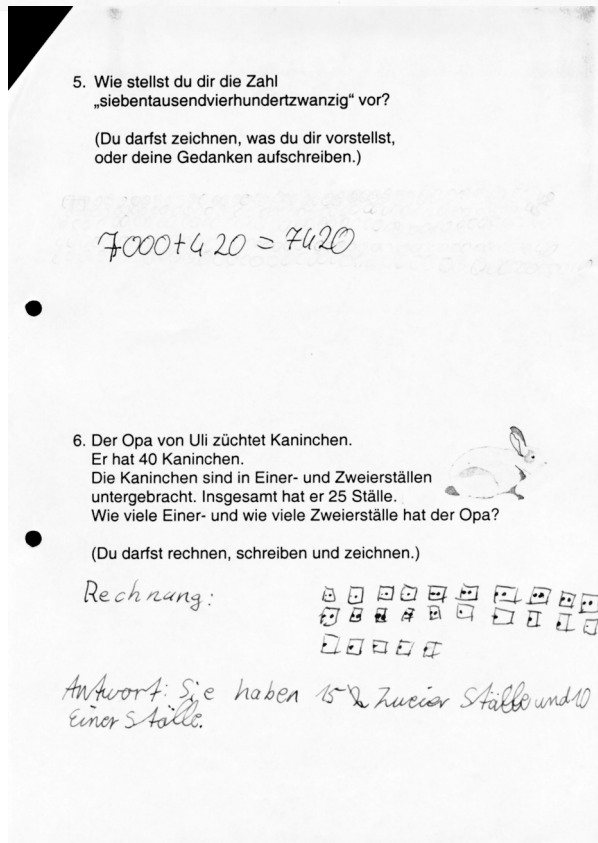 5. Wie stellst du dir die Zahl
„siebentausendvierhundertzwanzig“ vor?
(Du darfst zeichnen, was du dir vorstellst,
oder deine Gedanken aufschreiben.)
7000+420=7420
6. Der Opa von Uli züchtet Kaninchen.
Er hat 40 Kaninchen.
Die Kaninchen sind in Einer- und Zweierställen
untergebracht. Insgesamt hat er 25 Ställe.
Wie viele Einer- und wie viele Zweierställe hat der Opa?
(Du darfst rechnen, schreiben und zeichnen.)
Rechnung:
Antwort: Sie haben 15 Zweier Ställe und 10
Einer Ställe.